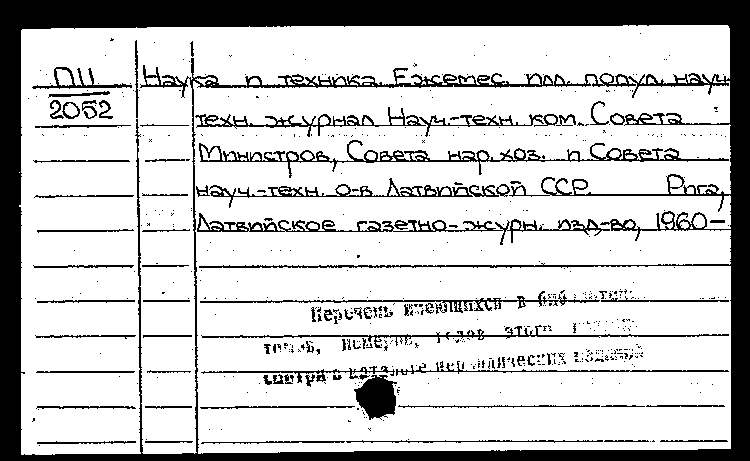 ПИ Наука и техника. Ежемес. илл. попул. науч.-
2052
техн. журнал Науч.-техн. ком. Совета
Министров, Совета нар. хоз. и Совета
науч.-техн. о-в Латвийской ССР. Рига,
Латвийское газетно-журн. изд-во, 1960–
Перечень имеющихся в библиотеке
томов, номеров, годов этого
смотри в каталоге периодических изданий